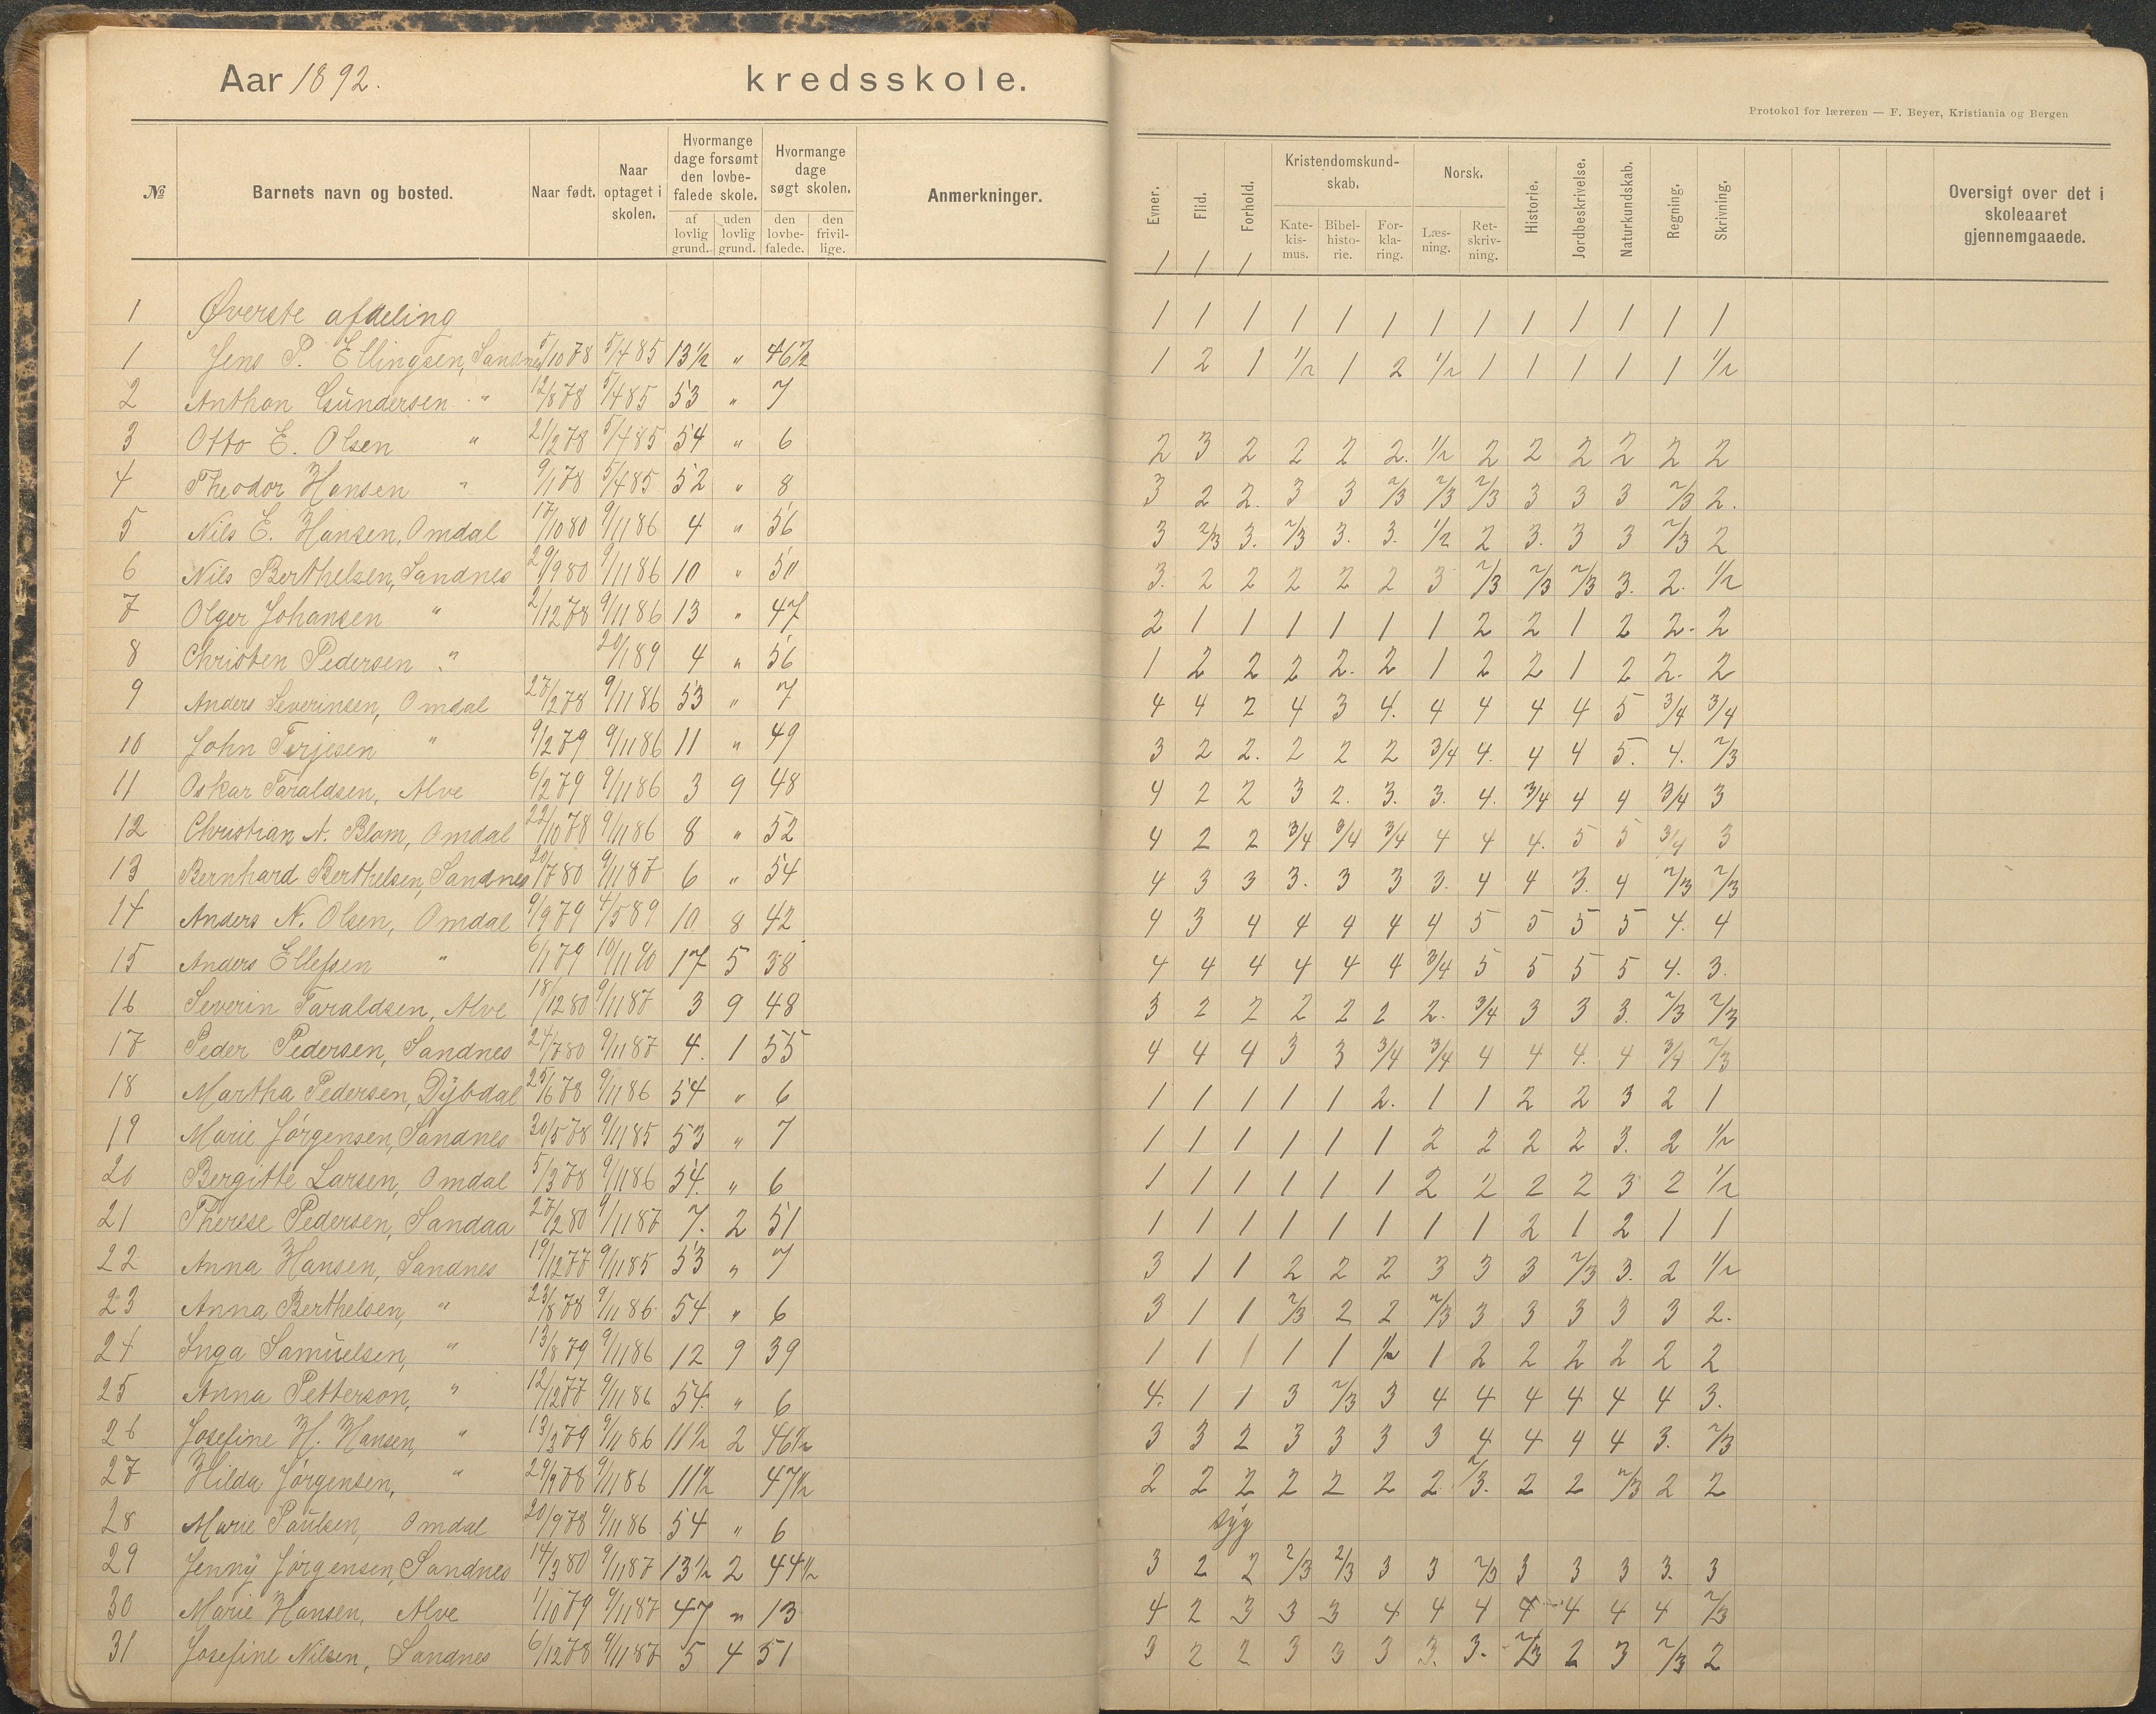 Aar 1892. kredsskole.
Protokol for læreren — F. Beyer, Kristiania og Bergen
№ Barnets navn og bosted. Naar født. Naar optaget i skolen. Hvormange dage forsømt den lovbefalede skole. af lovlig grund. uden lovlig grund. Hvormange dage søgt skolen. den lovbefalede. den frivillige. Anmerkninger.
Evner. Flid. Forhold. Kristendomskundskab. Katekismus. Bibelhistorie. Forklaring. Norsk. Læsning. Retskrivning. Historie. Jordbeskrivelse. Naturkundskab. Regning. Skrivning. Oversigt over det i skoleaaret gjennemgaaede.
1 1 1
1 Øverste afdeling 1 1 1 1 1 1 1 1 1 1 1 1 1
1 Jens P. Ellingsen, Sandnes 5/10 78 5/4 85 13½ " 46½ 1 2 1 1/2 1 2 1/2 1 1 1 1 1 1/2
2 Anthon Gundersen " 12/8 78 5/4 85 53 " 7
3 Otto E. Olsen " 21/2 78 5/4 85 54 " 6 2 3 2 2 2 2. 1/2 2 2 2 2 2 2
4 Theodor Hansen " 9/1 78 5/4 85 52 " 8 3 2 2. 3 3 2/3 2/3 2/3 3 3 3 2/3 2.
5 Nils E. Hansen, Omdal 17/10 80 9/11 86 4 " 56 3 2/3 3. 2/3 3. 3. 1/2 2 3. 3 3 2/3 2
6 Nils Berthelsen, Sandnes 29/9 80 9/11 86 10 " 50 3. 2 2 2 2 2 3 2/3 2/3 2/3 3. 2. 1/2
7 Olger Johansen " 2/12 78 9/11 86 13 " 47 2 1 1 1 1 1 1 2 2 1 2 2. 2
8 Christen Pedersen " 20/1 89 4 " 56 1 2 2 2 2. 2 1 2 2 1 2 2. 2
9 Anders Severinsen, Omdal 27/2 78 9/11 86 53 " 7 4 4 2 4 3 4. 4 4 4 4 5 3/4 3/4
10 John Terjesen " 9/2 79 9/11 86 11 " 49 3 2 2. 2 2 2 3/4 4. 4 4 5. 4. 2/3
11 Oskar Taraldsen, Alve 6/2 79 9/11 86 3 9 48 4 2 2 3 2. 3. 3. 4. 3/4 4 4 3/4 3
12 Christian A. Blom, Omdal 22/10 78 9/11 86 8 " 52 4 2 2 3/4 3/4 3/4 4 4 4. 5 5 3/4 3
13 Bernhard Berthelsen, Sandnes 20/7 80 9/11 87 6 " 54 4 3 3 3. 3 3 3. 4 4 3. 4 2/3 2/3
14 Anders N. Olsen, Omdal 9/9 79 4/5 89 10 8 42 4 3 4 4 4 4 4 5 5 5 5 4. 4
15 Anders Ellefsen " 6/1 79 10/11 90 17 5 38 4 4 4 4 4 4 3/4 5 5 5 5 4. 3.
16 Severin Taraldsen, Alve 18/12 80 9/11 87 3 9 48 3 2 2 2 2 2 2. 3/4 3 3 3. 2/3 2/3
17 Peder Pedersen, Sandnes 24/7 80 9/11 87 4. 1 55 4 4 4 3 3 3/4 3/4 4 4 4. 4 3/4 2/3
18 Martha Pedersen, Dybdal 25/6 78 9/11 86 54 " 6 1 1 1 1 1 2. 1 1 2 2 3 2 1
19 Marie Jørgensen, Sandnes 30/5 78 9/11 85 53 " 7 1 1 1 1 1 1 2 2 2 2 3. 2 1/2
20 Bergitte Larsen, Omdal 5/3 78 9/11 86 54. " 6 1 1 1 1 1 1 2 2 2 2 3 2 1/2
21 Therese Pedersen, Sandaa 27/2 80 9/11 87 7. 2 51 1 1 1 1 1 1 1 1 2 1 2 1 1
22 Anna Hansen, Sandnes 19/12 77 9/11 85 53 " 7 3 1 1 2 2 2 3 3 3 2/3 3. 2 1/2
23 Anna Berthelsen, " 23/8 78 9/11 86 54 " 6 3 1 1 2/3 2 2 2/3 3 3 3 3 3 2.
24 Inga Samuelsen, " 13/8 79 9/11 86 12 9 39 1 1 1 1 1 1/2 1 2 2 2 2 2 2
25 Anna Petterson, " 12/12 77 9/11 86 54. " 6 4. 1 1 3 2/3 3 4 4 4 4 4 4 3.
26 Josefine H. Hansen, " 13/3 79 9/11 86 11½ 2 46½ 3 3 2 3 3 3 3 4 4 4 4 3. 2/3
27 Hilda Jørgensen, " 29/9 78 9/11 86 11½ 47½ 2 2 2 2 2 2 2 2/3. 2 2 2/3 2 2
28 Marie Paulsen, Omdal 20/9 78 9/11 86 54 " 6 syg
29 Jenny Jørgensen, Sandnes 14/3 80 9/11 87 13½ 2 44½ 3 2 2 2/3 2/3 3 3 2/3 3 3 3 3. 3
30 Marie Hansen, Alve 1/10 79 9/11 87 47 " 13 4 2 3 3 3 4 4 4 4 4 4 4 2/3
31 Josefine Nilsen, Sandnes 6/12 78 9/11 87 5 4 51 3 2 2 3 3 3 3. 3. 2/3 2 3 2/3 2